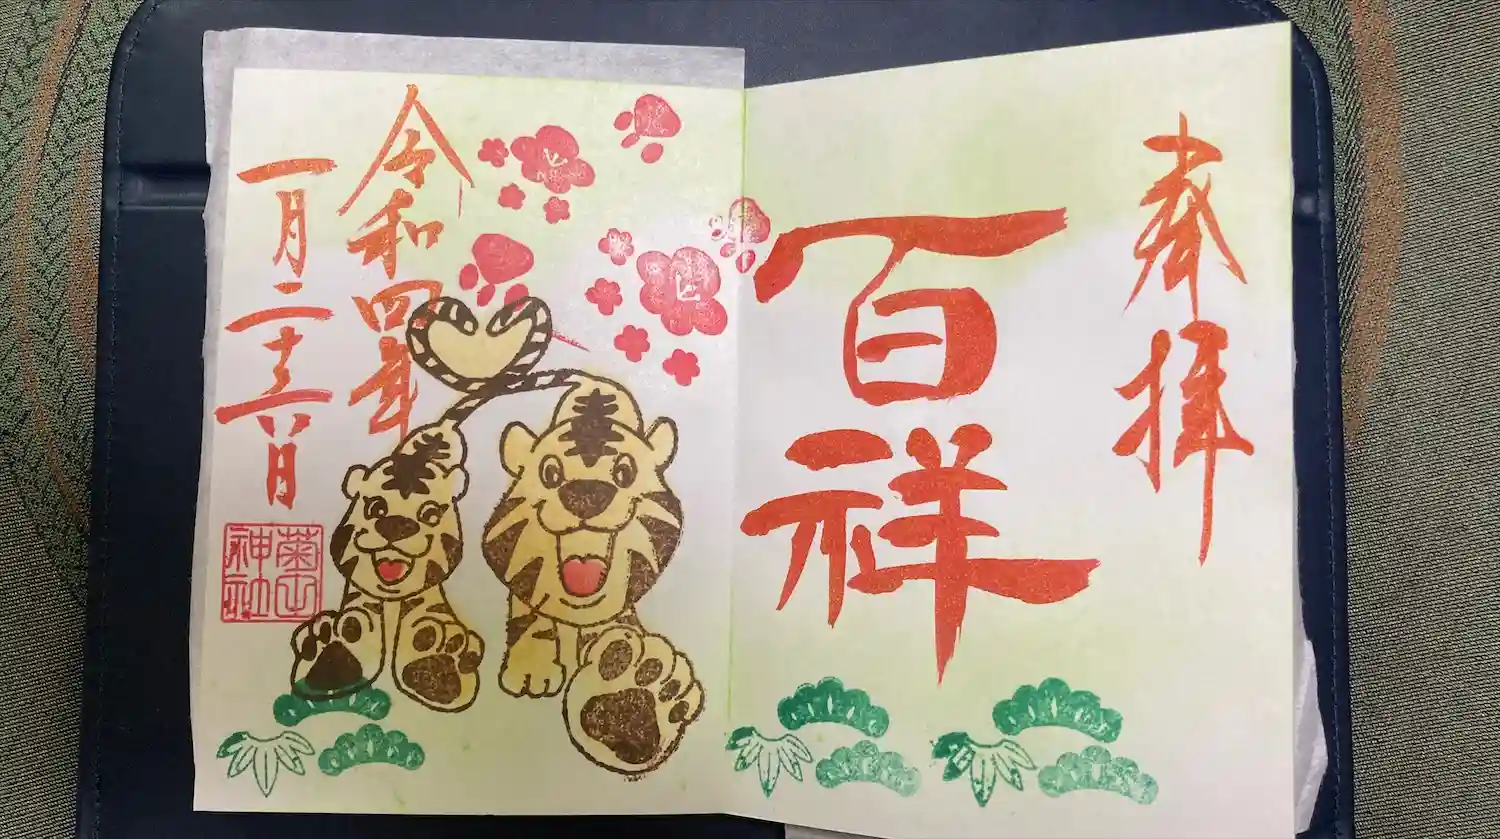 奉拝
百祥
令和四年
一月二十六日
菊田
神社